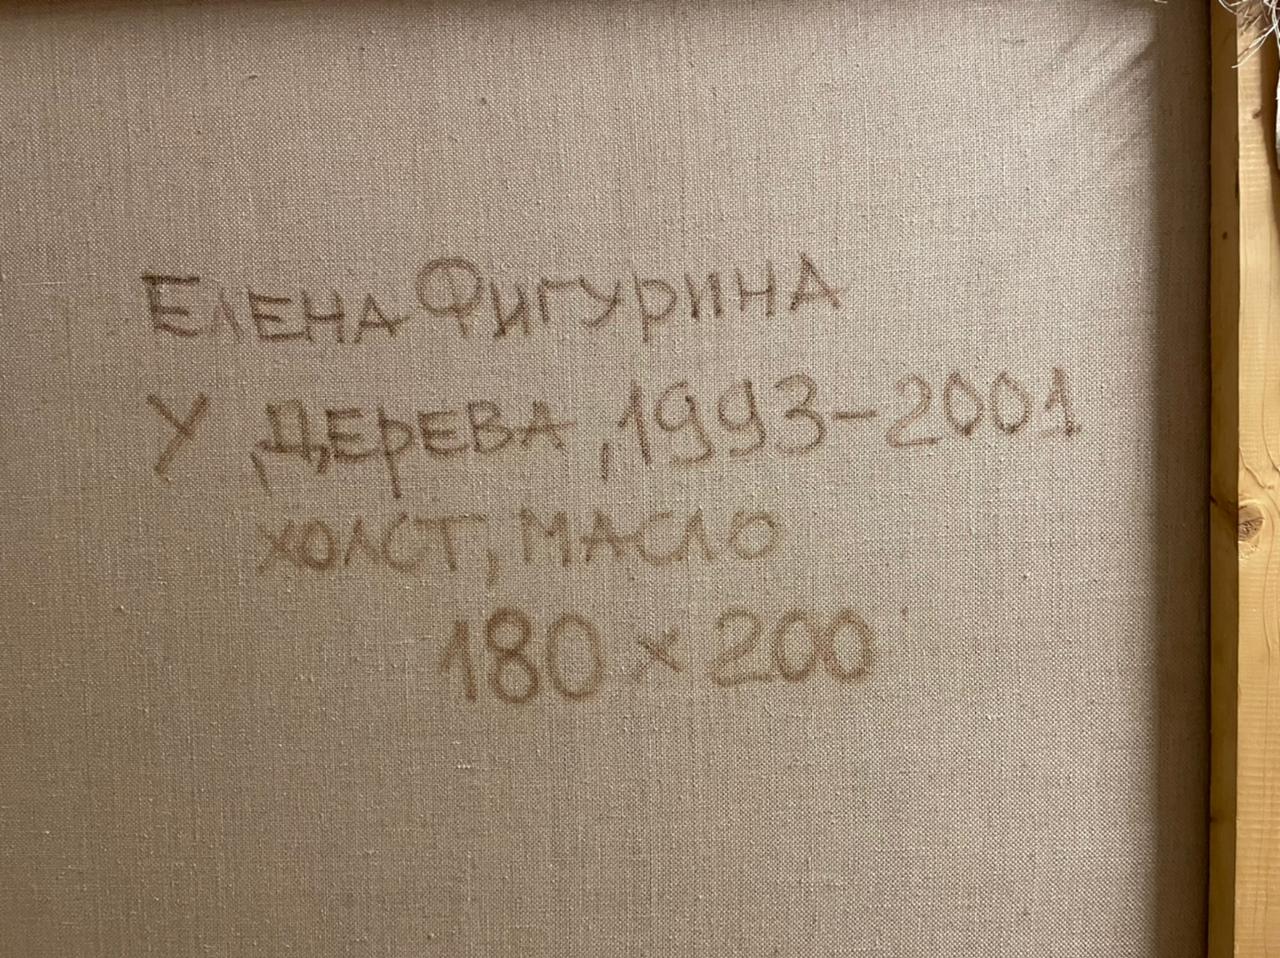 Елена Фигурина
У дерева, 1993-2001
холст, масло
180 x 200